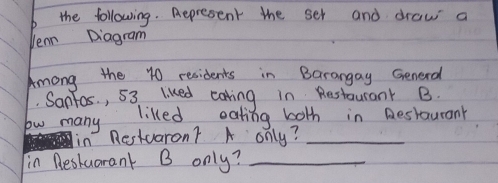 the following. Represent the set and draw a
Venn Diagram
Among the 70 residents in Barangay General
. Santos., 53 liked eating in Restaurant B.
ow many liked eating both in Restaurant
in Restuarant A only?
in Restuarant B only?